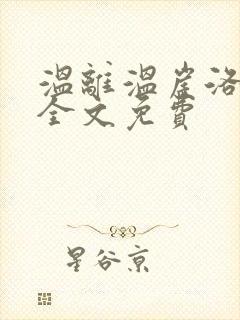 温離温崖洛
全文免費
星谷京